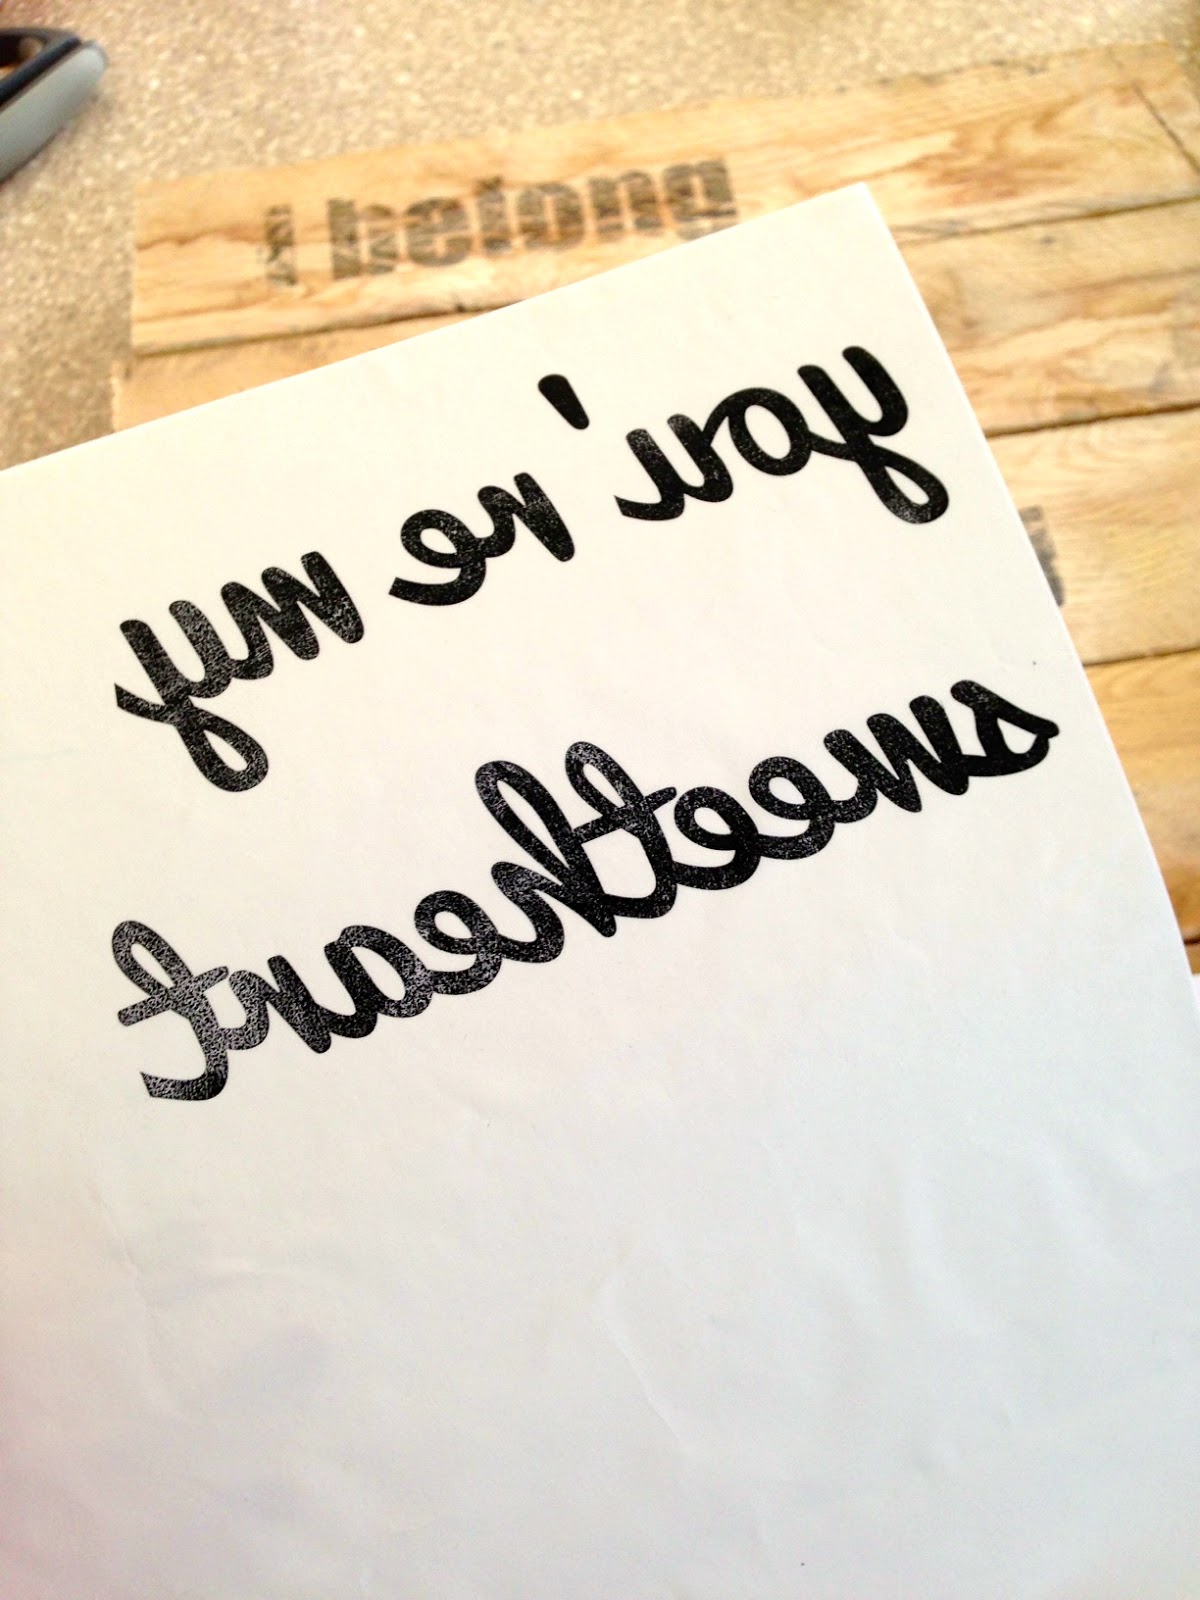 i belong
you're my
sweetheart